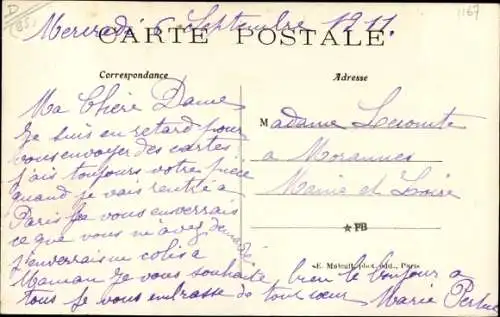 D
(85)
1167
Mercredi 6 Septembre 1911.
CARTE POSTALE.
Correspondance
Adresse
Ma Chère Dame
Je suis en retard pour
vous envoyer des cartes
j'ais toujours votre pièce
quand je vais rentré a
Paris Je vous enverrais
ce que vous m'avez demandé
j'enverrais un colis a
Maman Je vous souhaite bien le bonjour a
tous Je vous embrasse de tout cœur Marie
Madame Lecomte
a Morannes
Maine et Loire
★ FB
E. Mateuil, phot. édit., Paris